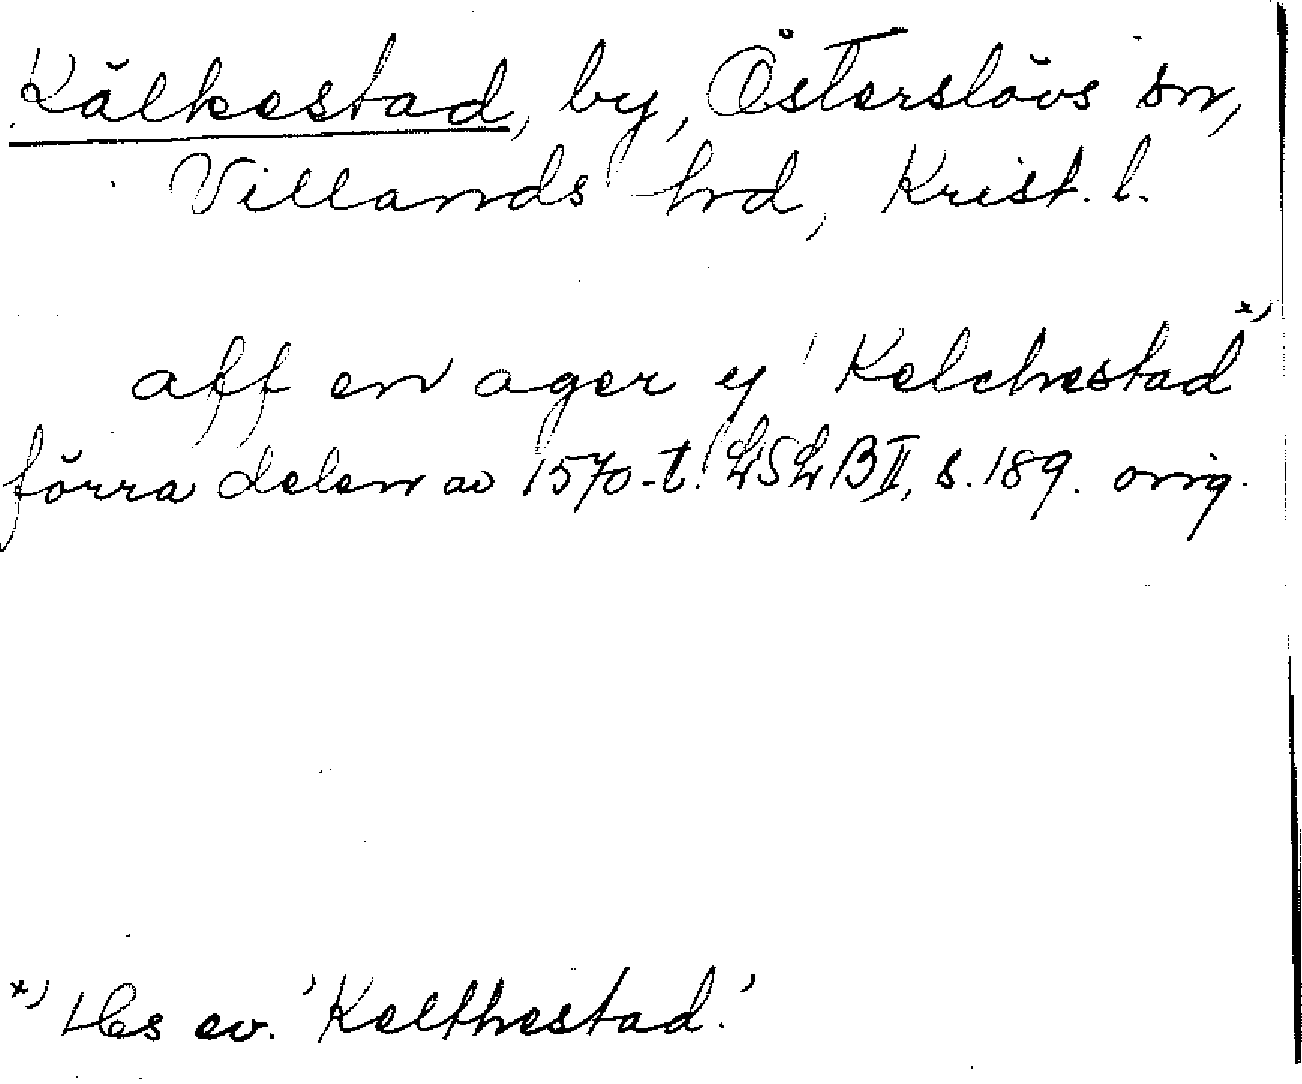 Kälkestad, by, Österslövs sn,
Villands hrd, Krist. l.
aff en ager y 'Kelchestad' *)
förra delen av 1570-t. LSLB II, s. 189. orig.
*) Hs ev. 'Kelthestad.'